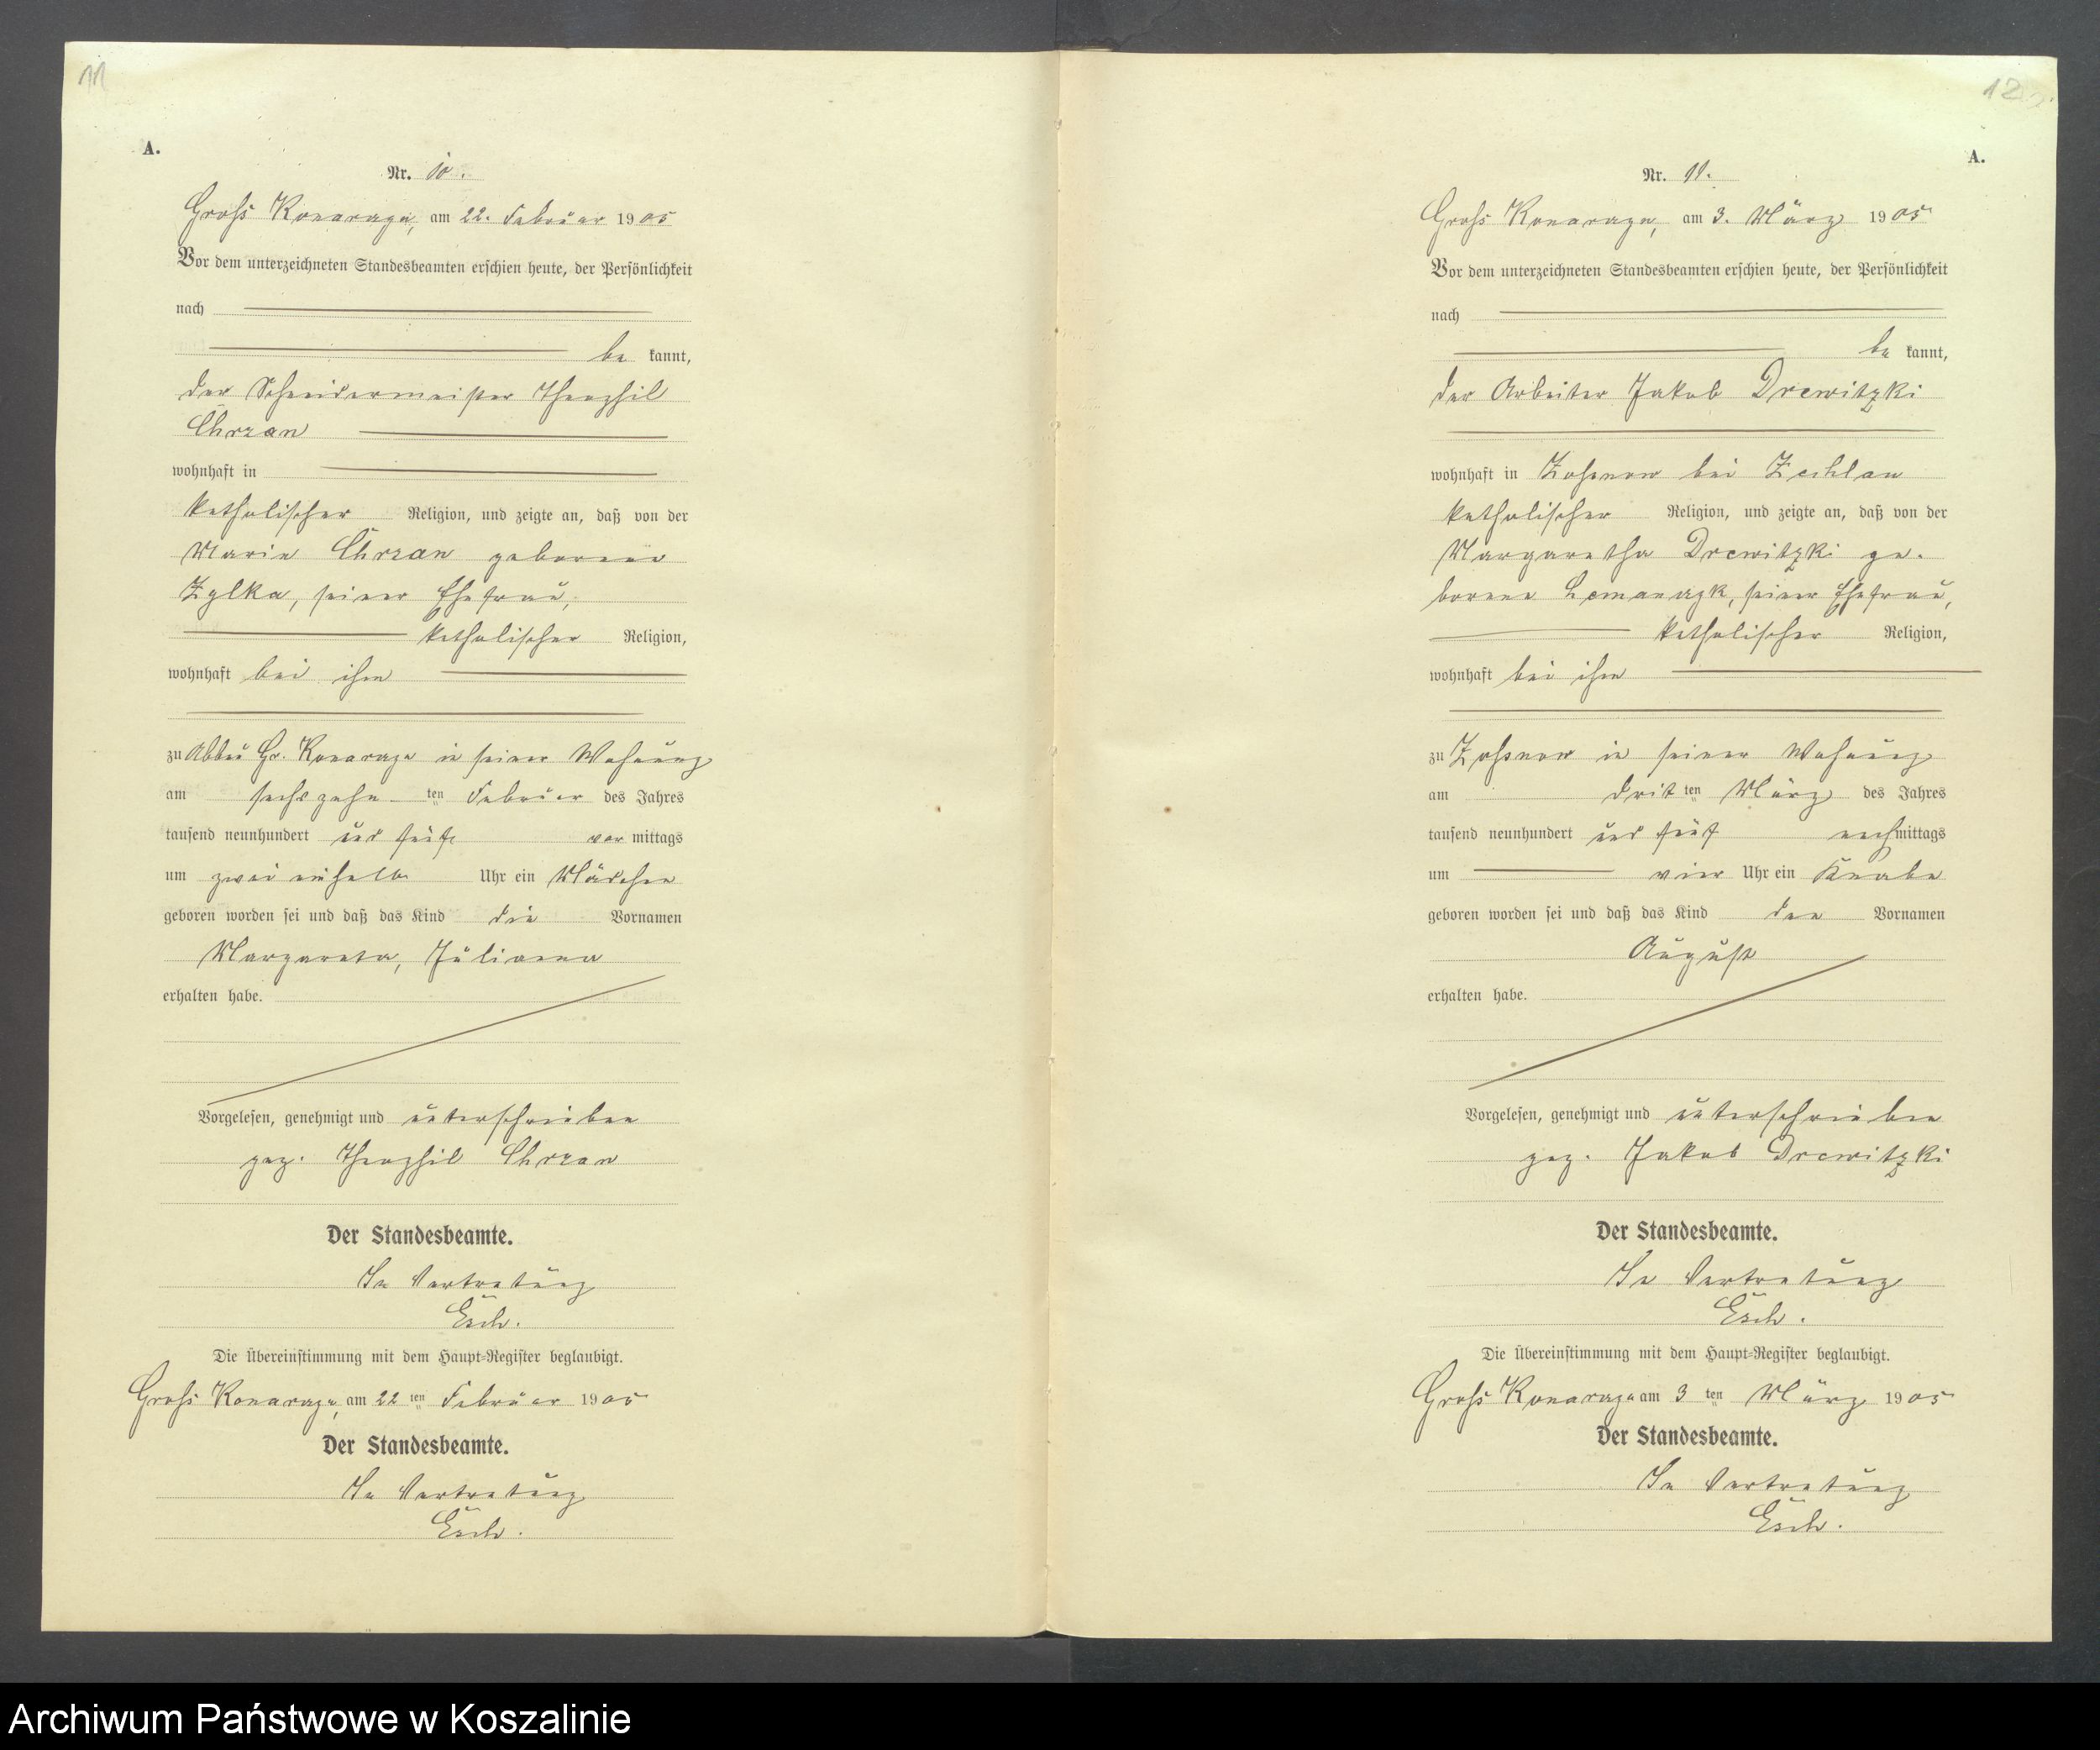 11
A.
Nr. 10.
Gross Konarczyn, am 22. Februar 1905
Vor dem unterzeichneten Standesbeamten erschien heute, der Persönlichkeit
nach
be kannt,
der Schneidermeister Theophil
Chrzan
wohnhaft in
katholischer Religion, und zeigte an, daß von der
Marie Chrzan geborene
Zylka, seiner Ehefrau,
katholischer Religion,
wohnhaft bei ihm
zu Abbau Gr. Konarczyn in seiner Wohnung
am sechszehn ten Februar des Jahres
tausend neunhundert und fünf vor mittags
um zwei einhalb Uhr ein Mädchen
geboren worden sei und daß das Kind die Vornamen
Margareta, Julianna
erhalten habe.
Vorgelesen, genehmigt und unterschrieben
gez. Theophil Chrzan
Der Standesbeamte.
In Vertretung
Esch.
Die Übereinstimmung mit dem Haupt-Register beglaubigt.
Gross Konarczyn, am 22 ten Februar 1905
Der Standesbeamte.
In Vertretung
Esch.
12
A.
Nr. 11.
Gross Konarczyn, am 3. März 1905
Vor dem unterzeichneten Standesbeamten erschien heute, der Persönlichkeit
nach
be kannt,
der Arbeiter Jakob Drewitzki
wohnhaft in Zossnow bei Zechlau
katholischer Religion, und zeigte an, daß von der
Margaretha Drewitzki ge-
borene Lemanczyk, seiner Ehefrau,
katholischer Religion,
wohnhaft bei ihm
zu Zossnow in seiner Wohnung
am drit ten März des Jahres
tausend neunhundert und fünf nach mittags
um vier Uhr ein Knabe
geboren worden sei und daß das Kind den Vornamen
August
erhalten habe.
Vorgelesen, genehmigt und unterschrieben
gez. Jakob Drewitzki
Der Standesbeamte.
In Vertretung
Esch.
Die Übereinstimmung mit dem Haupt-Register beglaubigt.
Gross Konarczyn am 3 ten März 1905
Der Standesbeamte.
In Vertretung
Esch.
Archiwum Państwowe w Koszalinie